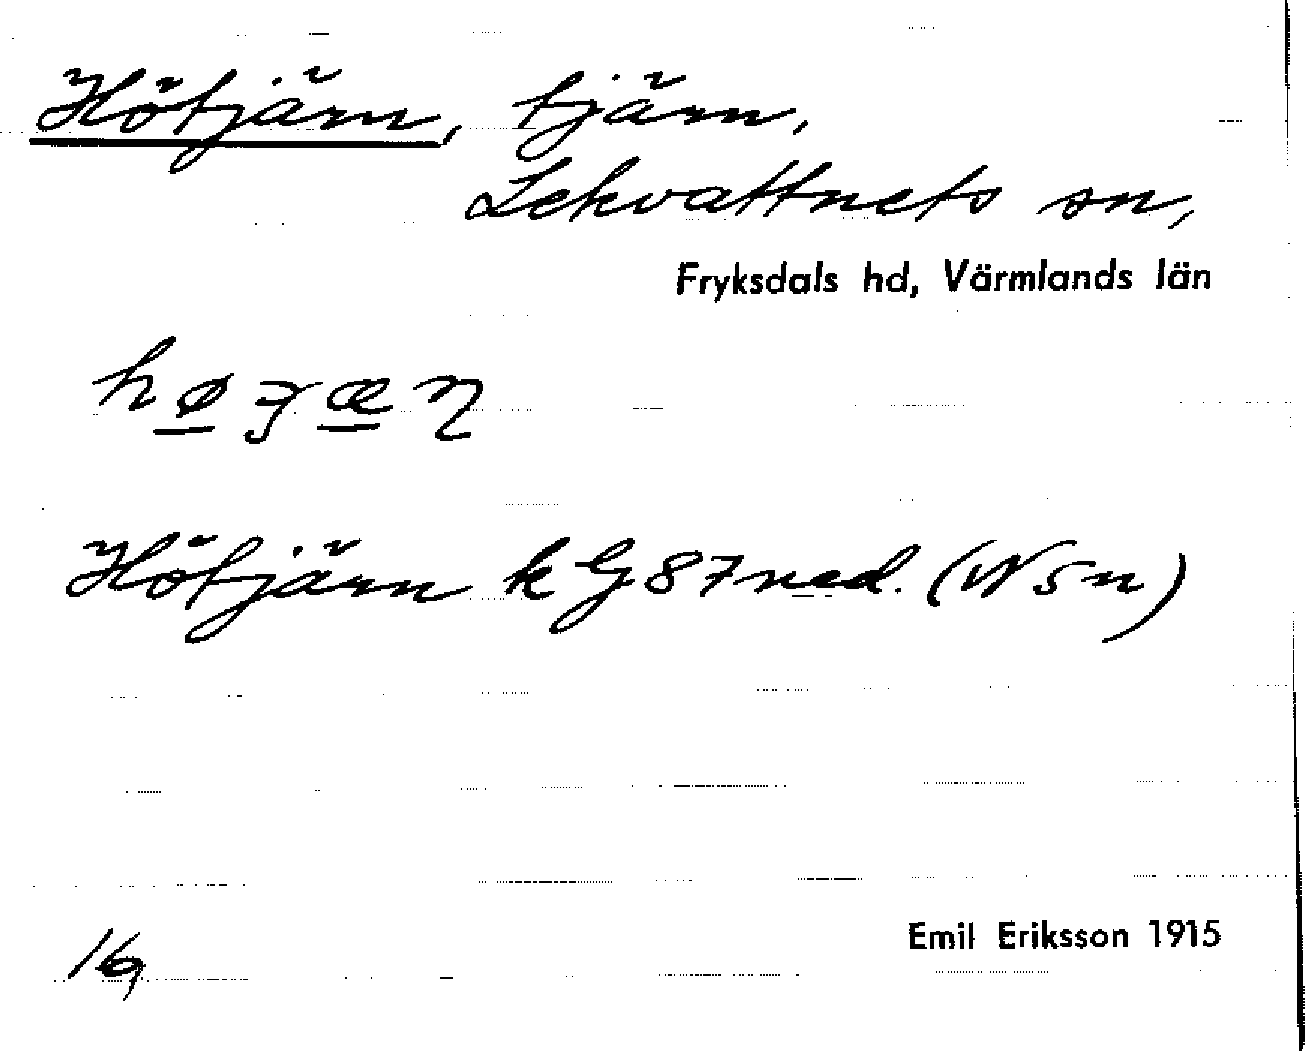 Hötjärn, tjärn,
Lekvattnets sn,
Fryksdals hd, Värmlands län
Hötjärn k G 87 ned. (N Sn)
16
Emil Eriksson 1915